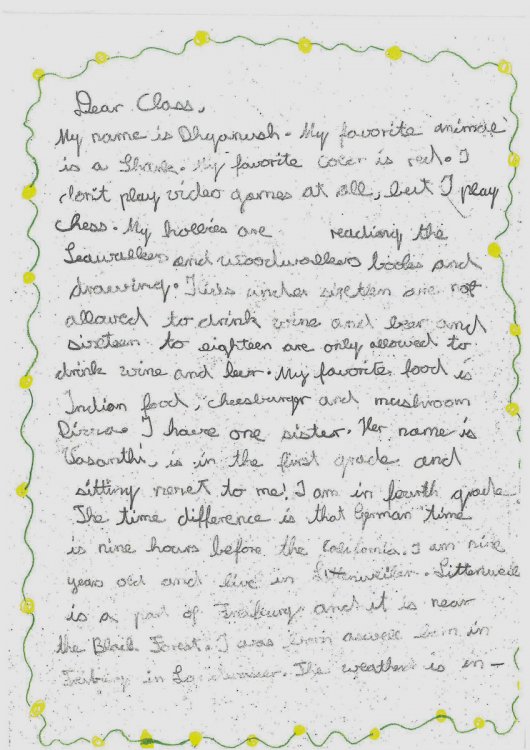 Dear Class,
My name is Dhyanush. My favorite animal
is a Shark. My favorite color is red. I
don't play video games at all, but I play
chess. My hobbies are reading the
Seawalkers and woodwalkers books and
drawing. Kids under sixteen are not
allowed to drink wine and beer and
sixteen to eighteen are only allowed to
drink wine and beer. My favorite food is
Indian food, cheesburger and mushroom
Pizza. I have one sister. Her name is
Vasanthi, is in the first grade and
sitting next to me! I am in fourth grade.
The time difference is that German time
is nine hours before the California. I am nine
years old and live in Littenweiler. Littenweil
is a part of Freiburg and it is near
the Black Forest. I was born in
in The weather is in-